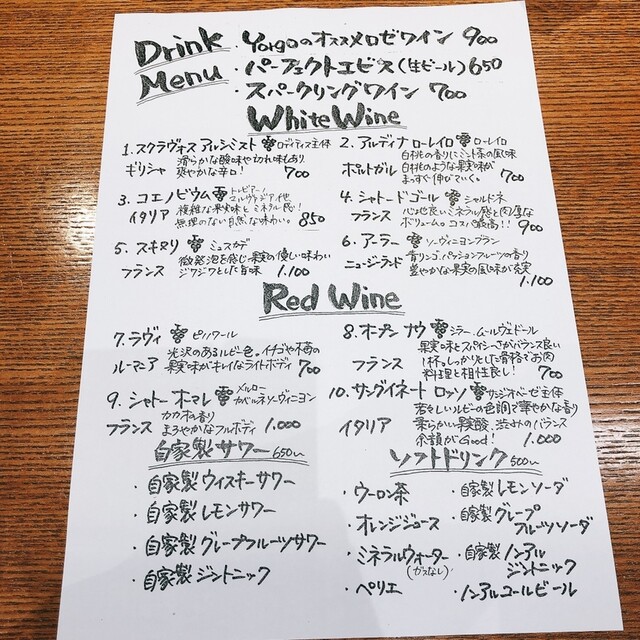 Drink Menu
・Yorgoのオススメロゼワイン 900
・パーフェクトエビス(生ビール) 650
・スパークリングワイン 700
White Wine
1. スクラヴォス アルシミスト ロディティス主体
ギリシャ
滑らかな酸味や切れ味もあり
爽やかな辛口! 700
2. アルディナ ローレイロ ローレイロ
ポルトガル
白桃の香りにミント系の風味
白桃のような果実味が
まっすぐ伸びていく。 700
3. コエノビウム トレビアーノ
マルヴァジア他
イタリア
複雑な果実味とミネラル感!
無理のない自然な味わい。 850
4. シャトードゴール シャルドネ
フランス
心地良いミネラル感と肉厚な
ボリューム。コスパ最高!! 900
5. スキヌリ ミュスカデ
フランス
微発泡を感じ果実の優しい味わい
ジワジワとした旨味 1.100
6. アーラー ソーヴィニヨンブラン
ニュージーランド
青リンゴ、パッションフルーツの香り
豊やかな果実の風味が充実
1.100
Red Wine
7. ラヴィ ピノノワール
ルーマニア
光沢のあるルビー色。イチゴや梅の
果実味がキレイなライトボディ 700
8. オープン ナウ シラー、ムールヴェドール
フランス
果実味とスパイシーさがバランス良い
1杯。しっかりとした骨格でお肉
料理と相性良し! 700
9. シャトー オマレ メルロー
カベルネソーヴィニヨン
フランス
カカオの香り
まろやかなフルボディ 1.000
10. サングイネート ロッソ サンジオベーゼ主体
イタリア
若々しいルビーの色調で華やかな香り
柔らかい果実酸、渋みのバランス
余韻がGood! 1.000
自家製サワー 650〜
・自家製ウィスキーサワー
・自家製レモンサワー
・自家製グレープフルーツサワー
・自家製ジントニック
ソフトドリンク 500〜
・ウーロン茶
・オレンジジュース
・ミネラルウォーター
(ガスなし)
・ペリエ
・自家製レモンソーダ
・自家製グレープ
フルーツソーダ
・自家製ノンアル
ジントニック
・ノンアルコールビール